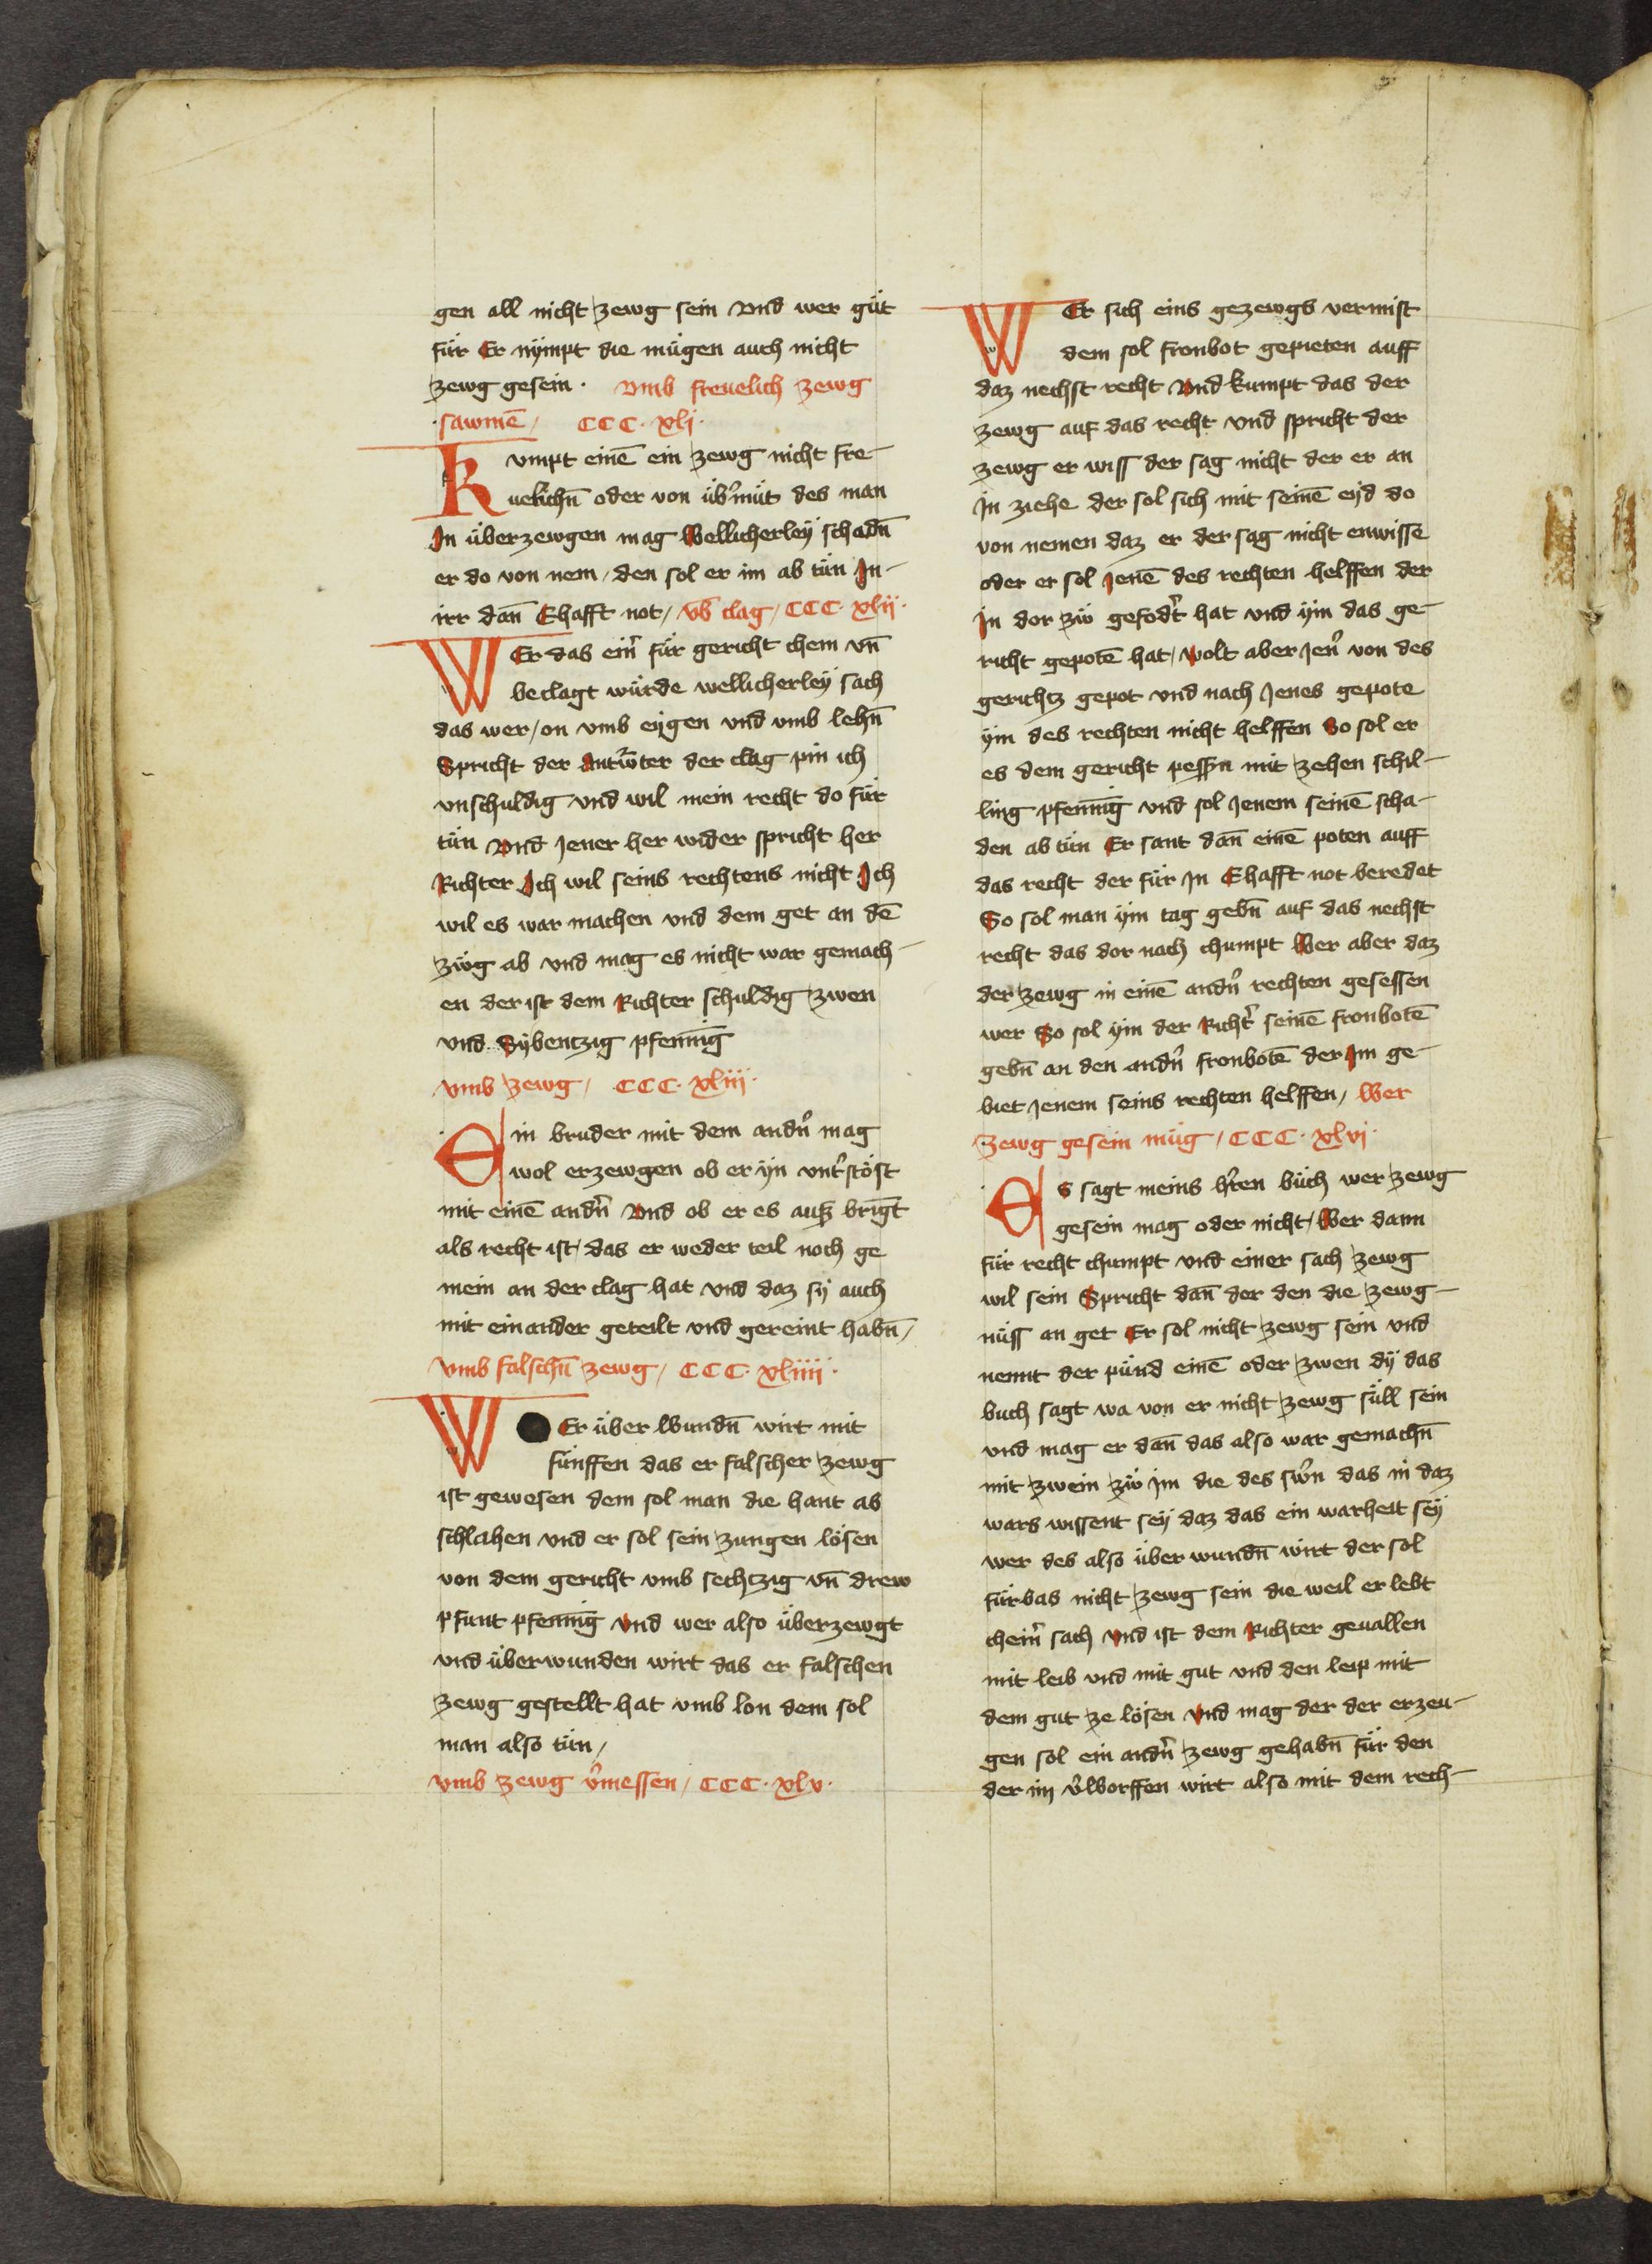 gen all nicht zewg sein Vnd wer güt
für Er nÿmpt die mügen auch nicht
zewg gesein · Vmb freuelich zewg
sawmē / CCC · xlj ·
Kvmpt einē ein zewg nicht fre-
uelichn̄ oder von üb̾müt des man
In überzewgen mag Wellicherleÿ schadn̄
er do von nem / den sol er im ab tün In-
irr dan̄ Ehafft not / Vb̄ clag / CCC · xlij ·
WEr das ein̾ für gericht chem vn̄
beclagt würde wellicherleÿ sach
das wer / on vmb eÿgen vnd vmb lehn̄
Spricht der Antw̾ter der clag pin ich
vnschuldig vnd wil mein recht do für
tün Vnd Jener her wider spricht her
Richter Ich wil seins rechtens nicht Ich
wil es war machen vnd dem get an dē
züg ab vnd mag es nicht war gemach-
en der ist dem Richter schuldig zwen
vnd Sÿbentzig pfennīg
Vmb zewg / CCC · xliij ·
Ein bruder mit dem andn̾ mag
wol erzewgen ob er ÿn vnt̾stöst
mit einē andn̾ Vnd ob er es auß brīgt
als recht ist / das er weder teil noch ge
mein an der clag hat vnd daz sÿ auch
mit einander geteilt vnd gereint habn̄ /
Vmb falschn̄ zewg / CCC · xliiij ·
WEr über Wundn̄ wirt mit
fünffen das er falscher zewg
ist gewesen dem sol man die hant ab
schlahen vnd er sol sein zungen lösen
von dem gericht vmb sechtzig vn̄ drew
pfunt pfennīg Vnd wer also überzewgt
vnd überwunden wirt das er falschen
zewg gestellt hat vmb lon dem sol
man also tün /
Vmb zewg v̾messen / CCC · xlv ·
WEr sich eins gezewgs vermist
dem sol fronbot gepieten auff
daz nechst recht Vnd kumpt das der
zewg auf das recht vnd spricht der
zewg er wiss der sag nicht der er an
In ziehe der sol sich mit seinē eÿd do
von nemen daz er der sag nicht enwisse
oder er sol Jenē des rechten helffen der
In dor zü gefodt̾ hat vnd ÿm das ge-
richt gepotē hat / Wolt aber Jen̾ von des
gerichtz gepot vnd nach Jenes gepote
ÿm des rechten nicht helffen So sol er
es dem gericht pessn̄ mit zehen schil-
ling pfennīg vnd sol Jenem seinē scha-
den ab tün Er sant dan̄ einē poten auff
das recht der für In Ehafft not beredet
So sol man ÿm tag gebn̄ auf das nechst
recht das dor nach chumpt Wer aber daz
der zewg in einē andn̾ rechten gesessen
wer So sol ÿm der Richt̾ seinē fronbotē
gebn̄ an den andn̾ fronbotē der Im ge-
biet Jenem seins rechten helffen / Wer
zewg gesein müg / CCC · xlvj ·
Es sagt meins hr̾en büch wer zewg
gesein mag oder nicht / Wer dann
für recht chumpt vnd einer sach zewg
wil sein Spricht dan̄ der den die zewg-
nüss an get Er sol nicht zewg sein vnd
nennt der pünd einē oder zwen dÿ das
buch sagt wa von er nicht zewg süll sein
vnd mag er dan̄ das also war gemachn̄
mit zwein zü im die des sw̾n das in daz
wars wissent seÿ daz das ein warheit seÿ
wer des also über wundn̄ wirt der sol
fürbas nicht zewg sein die weil er lebt
chein̾ sach Vnd ist dem Richter geuallen
mit leib vnd mit gut vnd den leip mit
dem gut ze lösen Vnd mag der der erzeu-
gen sol ein andn̾ zewg gehabn̄ für den
der im v̾Worffen wirt also mit dem rech-